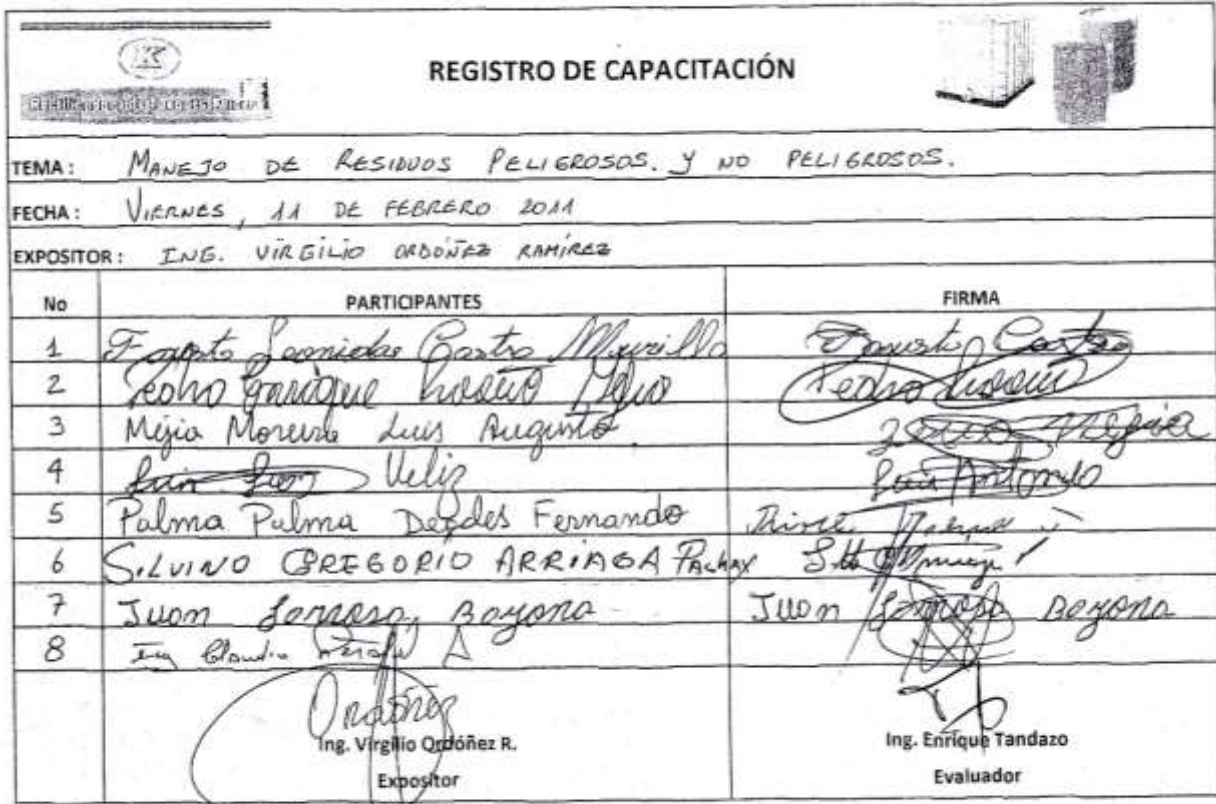 REGISTRO DE CAPACITACIÓN
TEMA: MANEJO DE RESIDUOS PELIGROSOS. Y NO PELIGROSOS.
FECHA: VIERNES, 11 DE FEBRERO 2011
EXPOSITOR: ING. VIRGILIO ORDOÑEZ RAMÍREZ
No PARTICIPANTES FIRMA
1 Fausto Leonidas Castro Murillo Fausto Castro
2 Pedro Enrique Pedro
3 Mejia Moreira Luis Augusto. Mejia
4 Luis Veliz Luis Antonio
5 Palma Palma Fernando
6 SILVINO GREGORIO ARRIAGA
7 Juan Bayona Juan Bayona
8 Ing Claudio
Ordóñez
Ing. Virgilio Ordóñez R. Ing. Enrique Tandazo
Expositor Evaluador